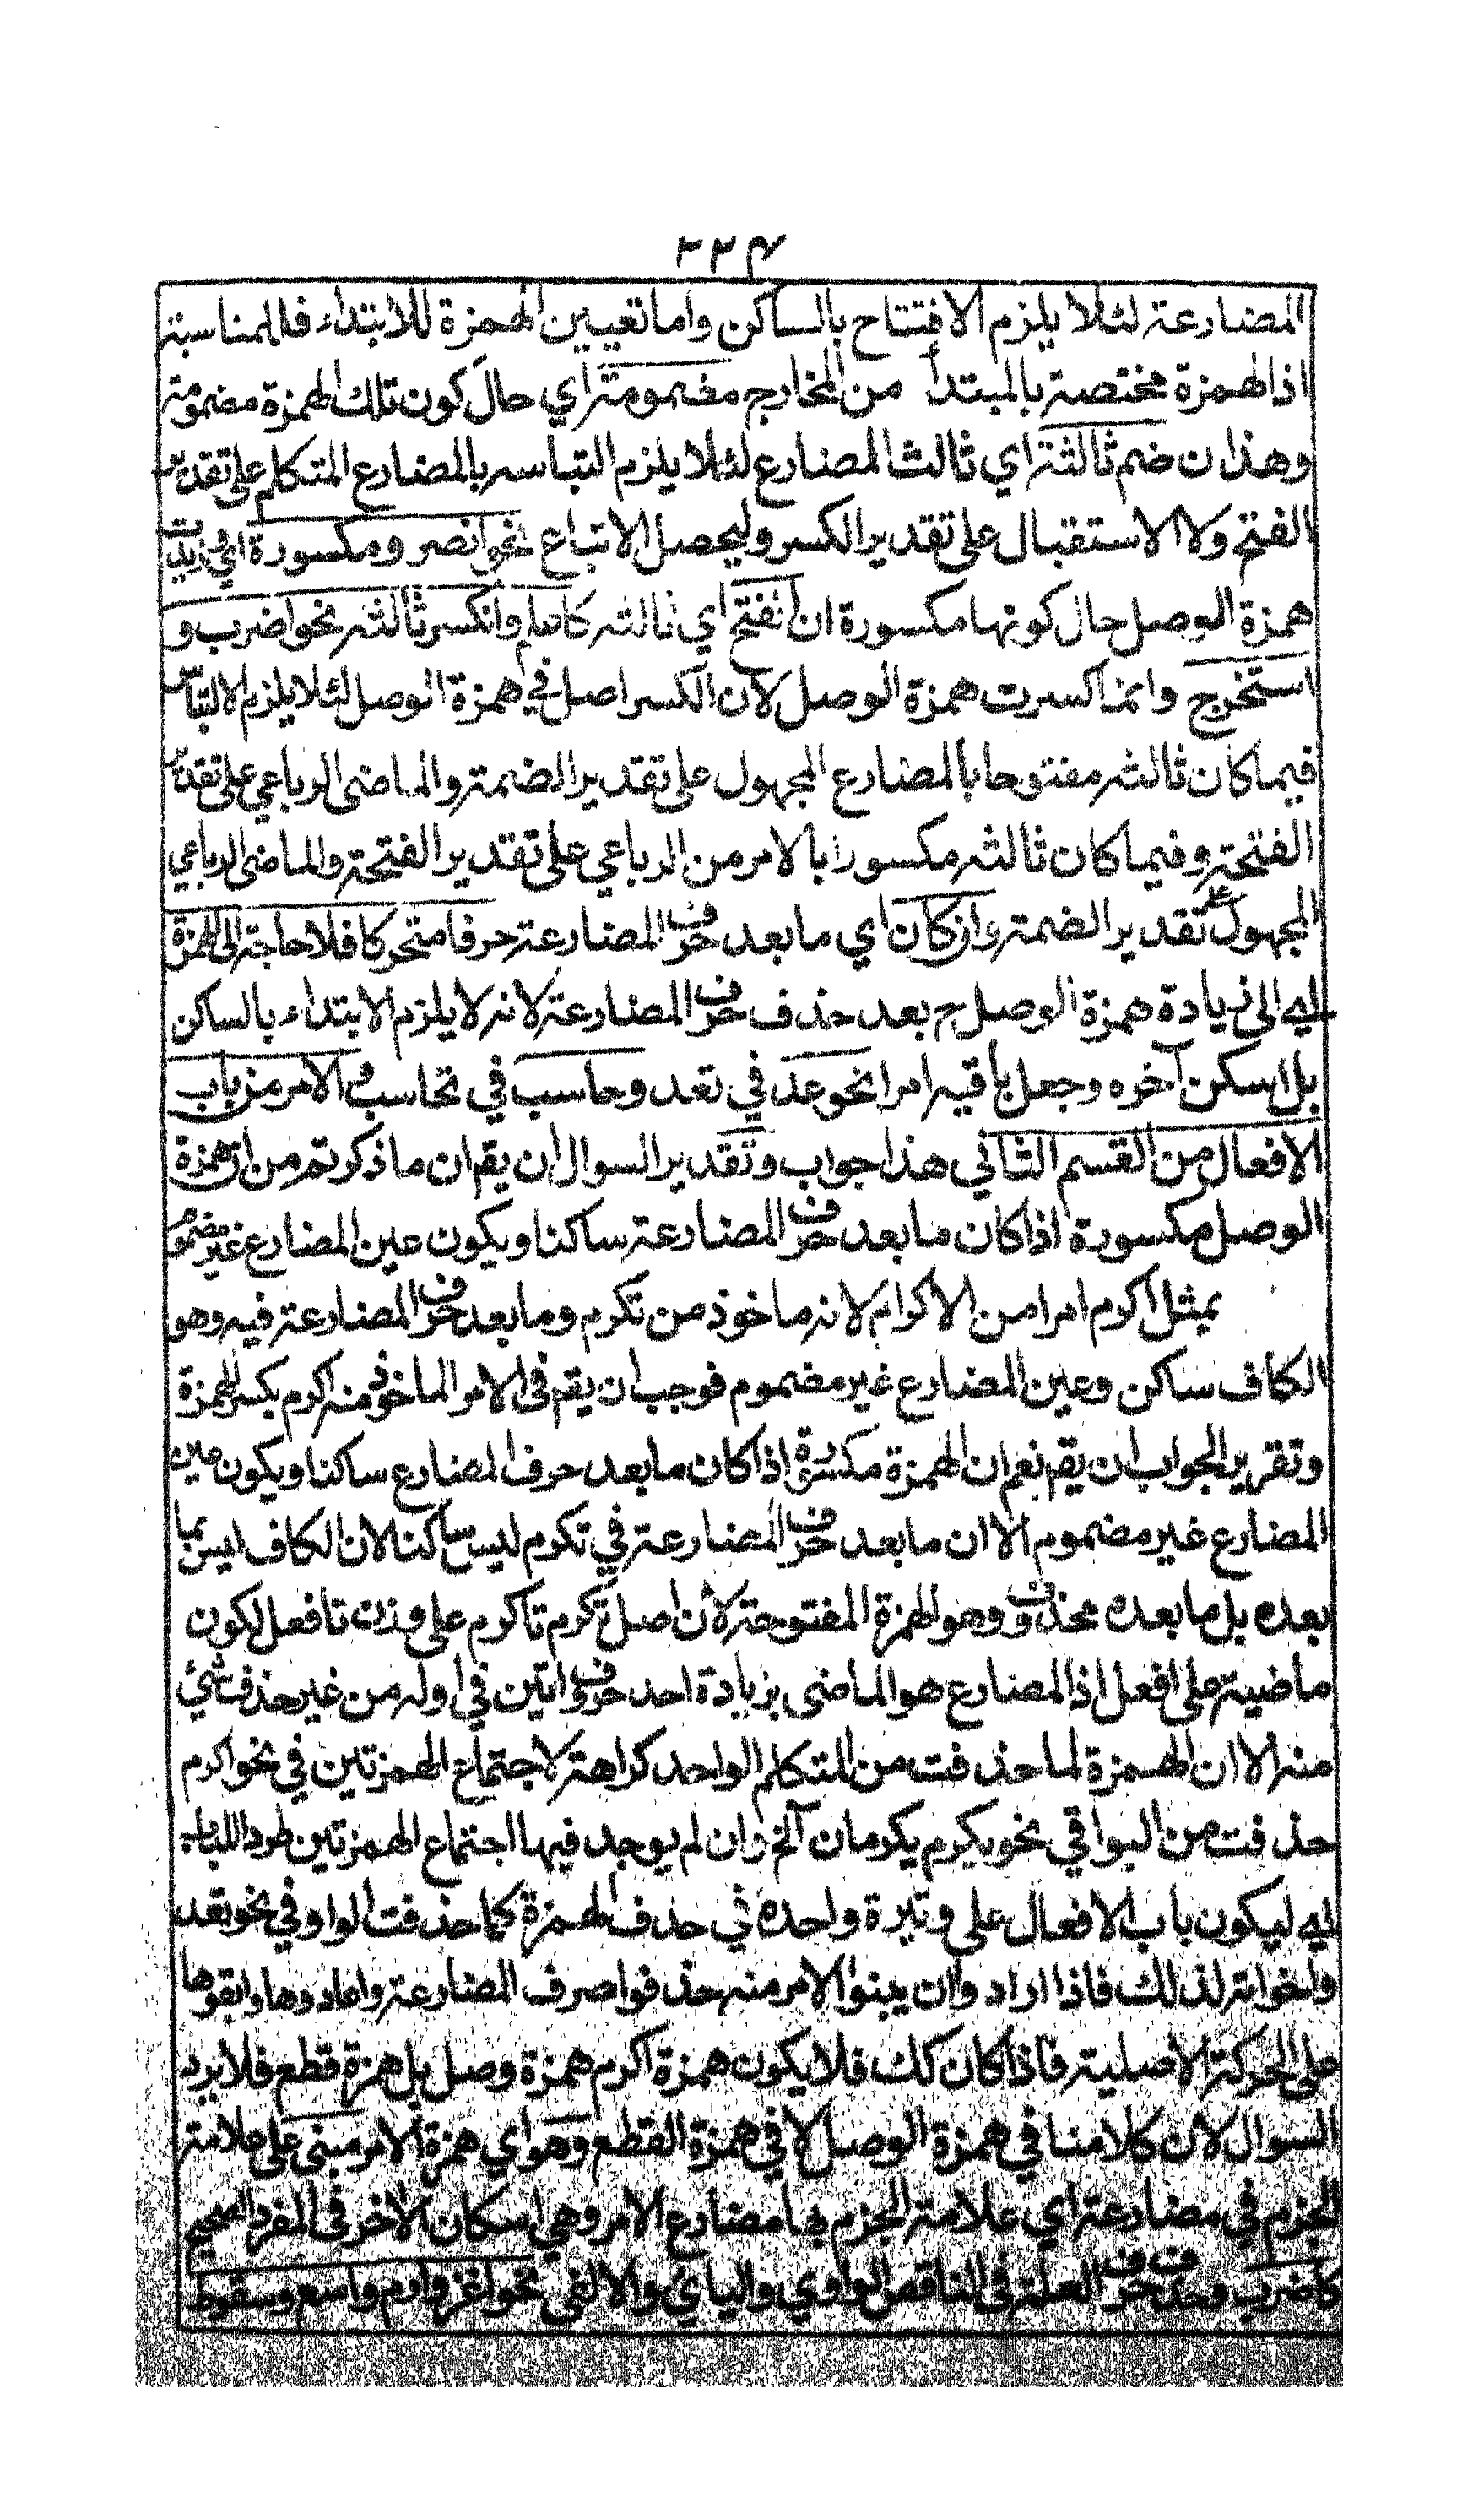 ٢٢٤
المضارعة لئلا يلزم الافتتاح بالساكن واما تعيين الهمزة للابتداء فالمناسبة
اذ الهمزة مختصة بالمبتدأ من المخارج مضمومة اي حال كون تلك الهمزة مضمومة
وهذا ان ضم ثالثة اي ثالث المضارع لئلا يلزم التباسه بالمضارع المتكلم على تقدير
الفتح ولا الاستقبال على تقدير الكسر وليحصل الاتباع نحو انصر ومكسورة اي وزيدت
همزة الوصل حال كونها مكسورة ان انفتح اي ثالثه كاعلم وانكسر ثالثه نحو اضرب و
استخرج وانما كسرت همزة الوصل لان الكسر اصل في همزة الوصل لئلا يلزم الالتباس
فيما كان ثالثه مفتوحا بالمضارع المجهول على تقدير الضمة والماضى الرباعي على تقدير
الفتحة وفيما كان ثالثه مكسورا بالامر من الرباعي على تقدير الفتحة والماضى الرباعي
المجهول على تقدير الضمة وان كان اي ما بعد حرف المضارعة حرفا متحركا فلا حاجة الى الهمزة
اي الى زيادة همزة الوصل ح بعد حذف حرف المضارعة لانه لا يلزم الابتداء بالساكن
بل اسكن آخره وجعل باقيه امرا نحو عد في تعد وحاسب في تحاسب والامر من باب
الافعال من القسم الثاني هذا جواب وتقدير السوال ان يقم ان ما ذكرتم من ان همزة
الوصل مكسورة اذا كان ما بعد حرف المضارعة ساكنا ويكون عين المضارع غير مضموم
يمثل اكرم امرا من الاكرام لانه ماخوذ من تكرم وما بعد حرف المضارعة فيه وهو
الكاف ساكن وعين المضارع غير مضموم فوجب ان يقم في الامر الماخوذ منه اكرم بكسر الهمزة
وتقرير الجواب ان يقم نعم ان الهمزة مكسورة اذا كان ما بعد حرف المضارع ساكنا ويكون عين
المضارع غير مضموم الا ان ما بعد حرف المضارعة في تكرم ليس ساكنا لان الكاف ليس بما
بعده بل ما بعده محذوف وهو الهمزة المفتوحة لان اصل تكرم تاكرم على وزن تافعل لكون
ماضيه على افعل اذ المضارع هو الماضى بزيادة احد حروف اتين في اوله من غير حذف شئ
منه الا ان الهمزة لما حذفت من المتكلم الواحد كراهة لاجتماع الهمزتين في نحو اكرم
حذفت من البواقي نحو يكرم يكرمان آلخ وان لم يوجد فيها اجتماع الهمزتين طردا للباب
اي ليكون باب الافعال على وتيرة واحده في حذف الهمزة كما حذفت الواو في نحو تعد
واخواته لذلك فاذا اراد وان يبنوا الامر منه حذفوا صرف المضارعة واعادوها وابقوها
على الحركة الاصلية فاذا كان كك فلا يكون همزة اكرم همزة وصل بل همزة قطع فلا يرد
السوال لان كلامنا في همزة الوصل لا في همزة القطع وهو اي همزة الامر مبنى على علامة
الجزم في مضارعة اي علامة الجزم بها مضارع الامر وهي اسكان الاخر في المفرد الصحيح
كاضرب وحذف حرف العلة في الناقص الواوي واليائي والالفي نحو اغز وارم واسع وسقوط